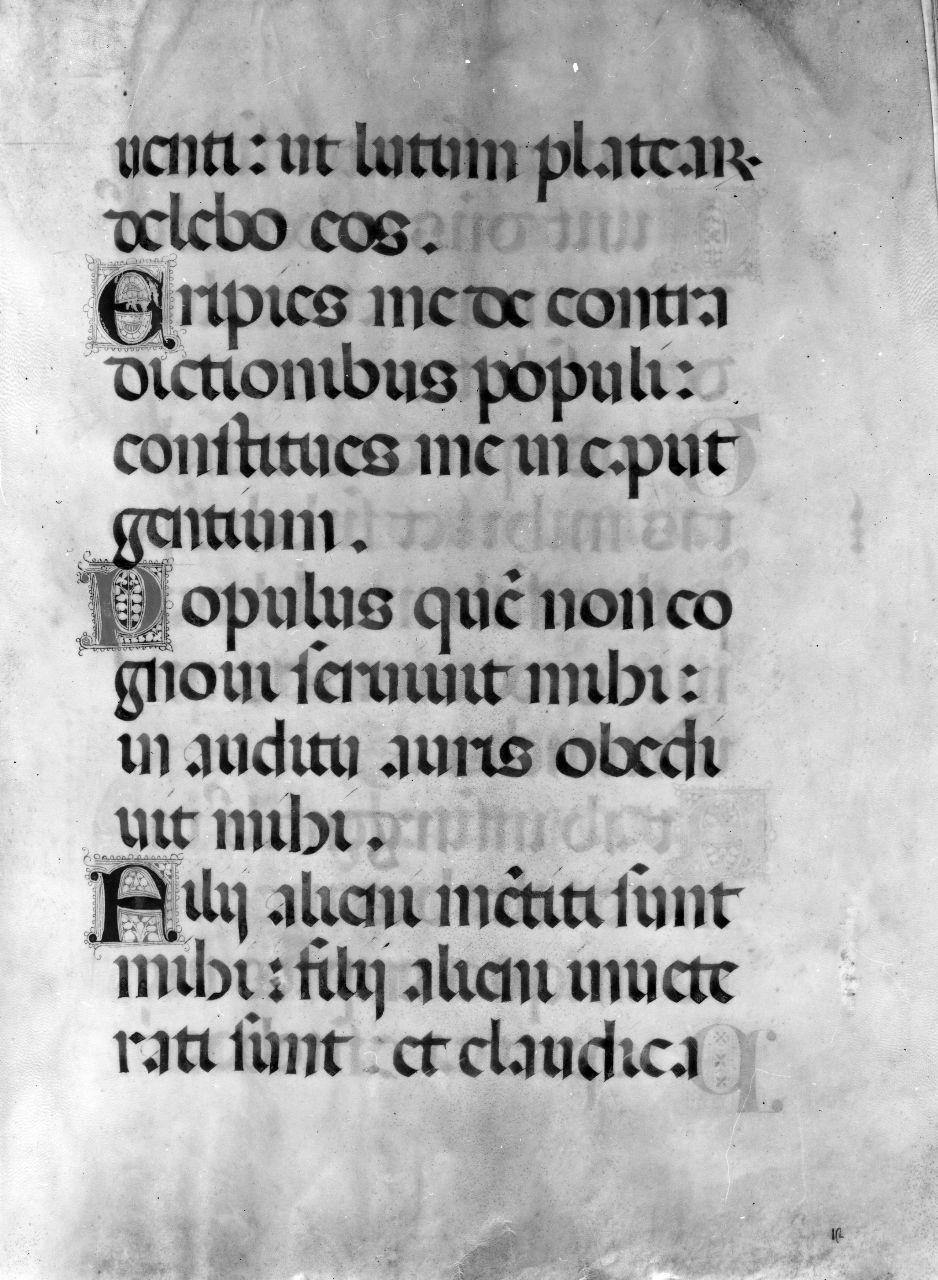 uenti : ut lutum platear.
delebo eos .
Eripies me de contra
dictionibus populi :
constitues me in caput
gentium .
Populus quē non co
gnoui seruiuit mihi :
in auditu auris obedi
uit mihi .
Filij alieni mētiti sunt
mihi : filij alieni inuete
rati sunt et claudica